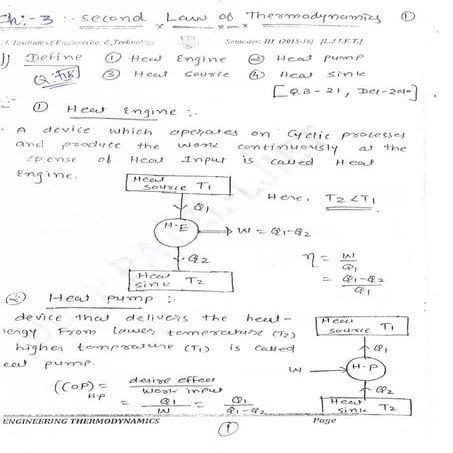 Ch:- 3 :- Second Law of Thermodynamics ①
J. Institute of Engineering & Technology Semester: III (2015-16) [L.J.I.E.T.]
1) Define ① Heat Engine ② Heat pump
③ Heat source ④ Heat sink
[Q.B-21, Dec-2010]
① Heat Engine :-
A device which operates on Cyclic processes
and produce the work continuously at the
xpense of Heat Input is called Heat
Engine.
Heat
Source T1
Q1
H.E
W = Q1-Q2
Q2
Heat
Sink T2
Here, T2 < T1
η = W/Q1
= Q1-Q2/Q1
② Heat pump :-
device that delivers the heat-
nergy From lower temperature (T2)
higher temprature (T1) is called
eat pump.
(COP)H.P = desire effect/work input
= Q1/W = Q1/Q1-Q2
Heat
source T1
Q1
W
H.P
Q2
Heat
sink T2
ENGINEERING THERMODYNAMICS Page
①